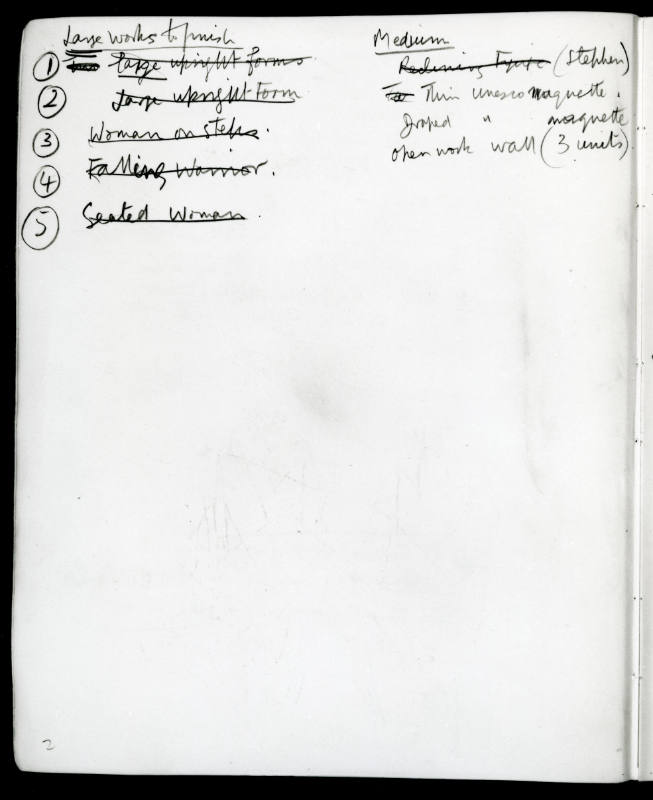 Large works to finish
1 large upright forms
2 Large upright Form
3 Woman on steps.
4 Falling Warrior.
5 Seated Woman.
Medium
Reclining Figure (Stephen)
Thin unesco maquette.
Draped " maquette
open work wall (3 units)
2